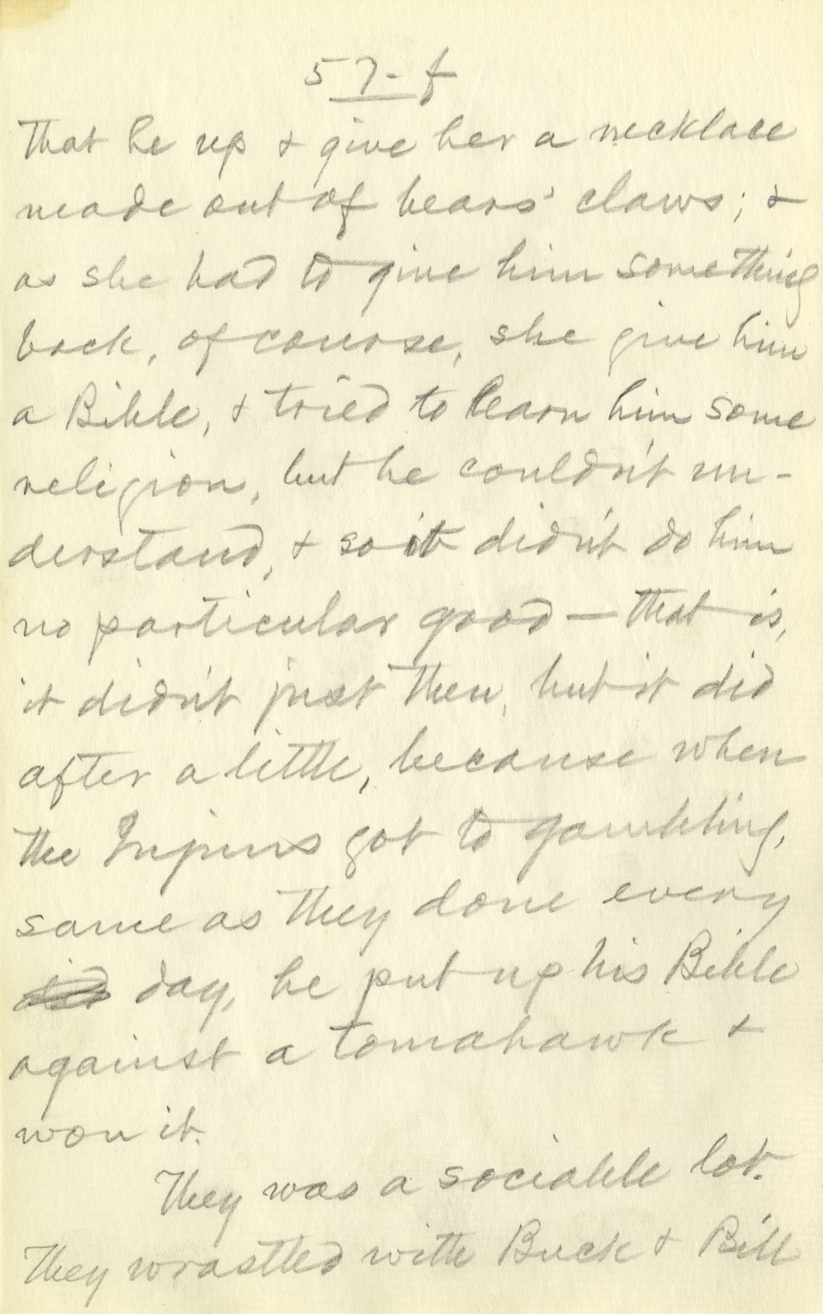 57-f
that he up & give her a necklace
made out of bears' claws; &
as she had to give him something
back, of course, she give him
a Bible, & tried to learn him some
religion, but he couldn't un-
derstand, & so it didn't do him
no particular good — that is,
it didn't just then, but it did
after a little, because when
the Injuns got to gambling,
same as they done every
day, he put up his Bible
against a tomahawk &
won it.
They was a sociable lot.
They wrastled with Buck & Bill